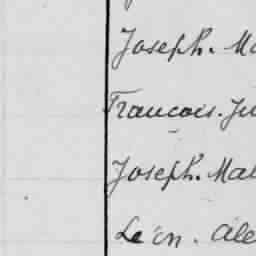 Joseph. Ma
Francois. Ju
Joseph. Mat
Léon. Ale